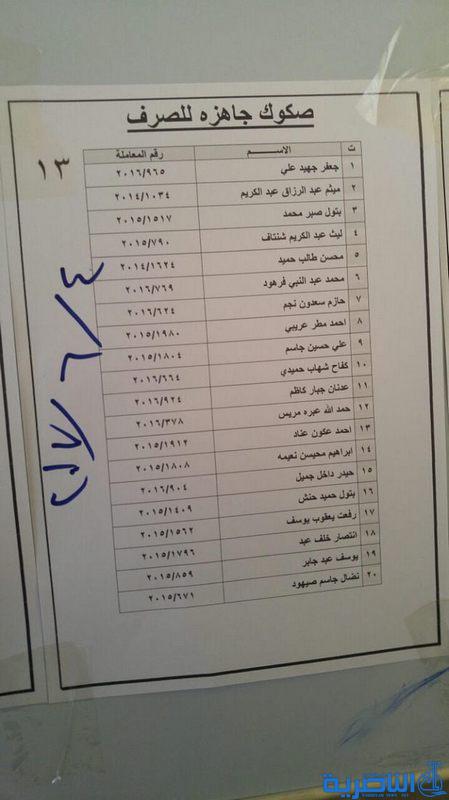 صكوك جاهزه للصرف
١٣
ت الاســـم رقم المعاملة
١ جعفر جهيد علي ٢٠١٦/٩٦٥
٢ ميثم عبد الرزاق عبد الكريم ٢٠١٤/١٠٣٤
٣ بتول صبر محمد ٢٠١٥/١٥١٧
٤ ليث عبد الكريم شنتاف ٢٠١٥/٧٩٠
٥ محسن طالب حميد ٢٠١٤/١٦٢٤
٦ محمد عبد النبي فرهود ٢٠١٦/٧٦٩
٧ حازم سعدون نجم ٢٠١٦/٦٢٤
٨ احمد مطر عريبي ٢٠١٥/١٩٨٠
٩ علي حسين جاسم ٢٠١٥/١٨٠٤
١٠ كفاح شهاب حميدي ٢٠١٦/٦٦٤
١١ عدنان جبار كاظم ٢٠١٦/٩٢٤
١٢ حمد الله عبره مريس ٢٠١٦/٣٧٨
١٣ احمد عكون عناد ٢٠١٥/١٩١٢
١٤ ابراهيم محيسن نعيمه ٢٠١٥/١٨٠٨
١٥ حيدر داخل جميل ٢٠١٦/٩٠٤
١٦ بتول حميد حنش ٢٠١٥/١٤٠٩
١٧ رفعت يعقوب يوسف ٢٠١٥/١٥٦٢
١٨ انتصار خلف عبد ٢٠١٥/١٧٩٦
١٩ يوسف عبد جابر ٢٠١٥/٨٥٩
٢٠ نضال جاسم صيهود ٢٠١٥/٦٧١
٦/٤
الناصرية